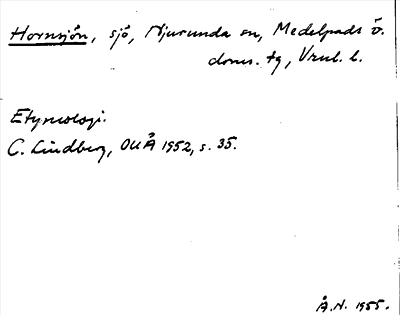 Hornsjön, sjö, Njurunda sn, Medelpads ö.
doms. tg, Vnrl. l.
Etymologi.
C. Lindberg, OUÅ 1952, s. 35.
Å.N. 1955.